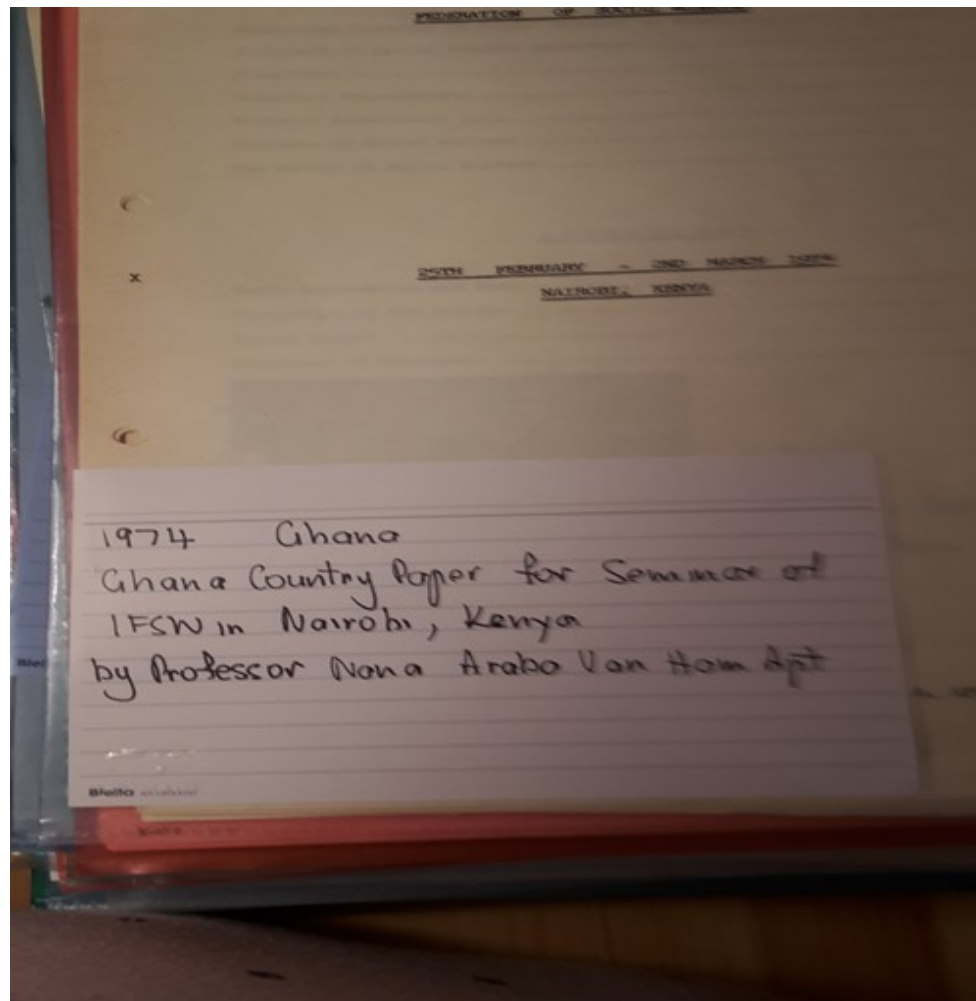 FEDERATION OF SOCIAL
25TH FEBRUARY - 2ND MARCH 1974
NAIROBI, KENYA
x
1974 Ghana
Ghana Country Paper for Seminar of
IFSW in Nairobi, Kenya
by Professor Nana Araba Van Ham Apt
Biella